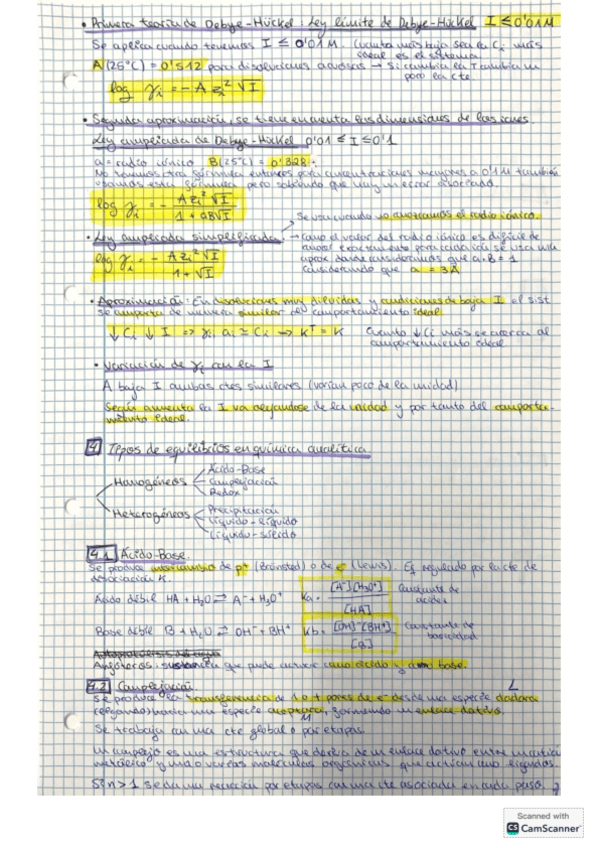 • Primera teoría de Debye-Hückel: Ley límite de Debye-Hückel I ≤ 0'01M
Se aplica cuando tenemos I ≤ 0'01M. Cuanto más baja sea la Ci más
ideal es el sistema
A (25°C) = 0'512 para disoluciones acuosas → si cambia la T también
poco la cte
log γi = -A zi² √I
• Segunda aproximación, se tiene en cuenta las dimensiones de los iones
Ley ampliada de Debye-Hückel 0'01 ≤ I ≤ 0'1
a = radio iónico B (25°C) = 0'328.
No tenemos otra fórmula entonces para concentraciones mayores a 0'1M también
usamos esta fórmula pero sabiendo que hay un error asociado.
log γi = - A zi² √I / 1 + aB√I
Se usa cuando no conocemos el radio iónico.
• Ley ampliada simplificada: → como el valor del radio iónico es difícil de
exactamente para cada ion se usa una
aprox donde consideramos que a·B = 1
Considerando que a = 3Å
log γi = - A zi² √I / 1 + √I
• Aproximación: En disoluciones muy diluidas y condiciones de baja I el sist
se comporta de manera similar al comportamiento ideal
↓ Ci ↓ I ⇒ γi ai ≃ Ci ⇒ Kᵀ = K Cuanto ↓Ci más se acerca al
comportamiento ideal
• Variación de γi con la I
A baja I ambas ctes similares (varían poco de la unidad)
Según aumenta la I va alejándose de la unidad y por tanto del comporta-
miento ideal.
4 Tipos de equilibrios en química analítica
Homogéneos
Ácido-Base
Complejación
Redox
Heterogéneos
Precipitación
Líquido-Líquido
Líquido-sólido
4.1 Ácido-Base.
Se produce intercambio de p⁺ (Brönsted) o de e⁻ (Lewis). Eq regulado por la cte de
disociación K.
Ácido débil HA + H₂O ⇌ A⁻ + H₃O⁺ Ka = [A⁻][H₃O⁺] / [HA] Constante de
acidez
Base débil B + H₂O ⇌ OH⁻ + BH⁺ Kb = [OH]⁻[BH⁺] / [B] Constante de
basicidad
Anfóteros: sustancia que puede actuar como ácido y como base.
4.2 Complejación L
Se produce la transferencia de 1 o + pares de e⁻ desde una especie dadora
(ligando) hacia una especie aceptora, formando un enlace dativo.
M
Se trabaja con una cte global o por etapas.
Un complejo es una estructura que deriva de un enlace dativo entre un catión
metálico y una o varias moléculas orgánicas que actúan como ligandos.
Si n > 1 se da una reacción por etapas con una cte asociada en cada paso.
Scanned with
CS CamScanner